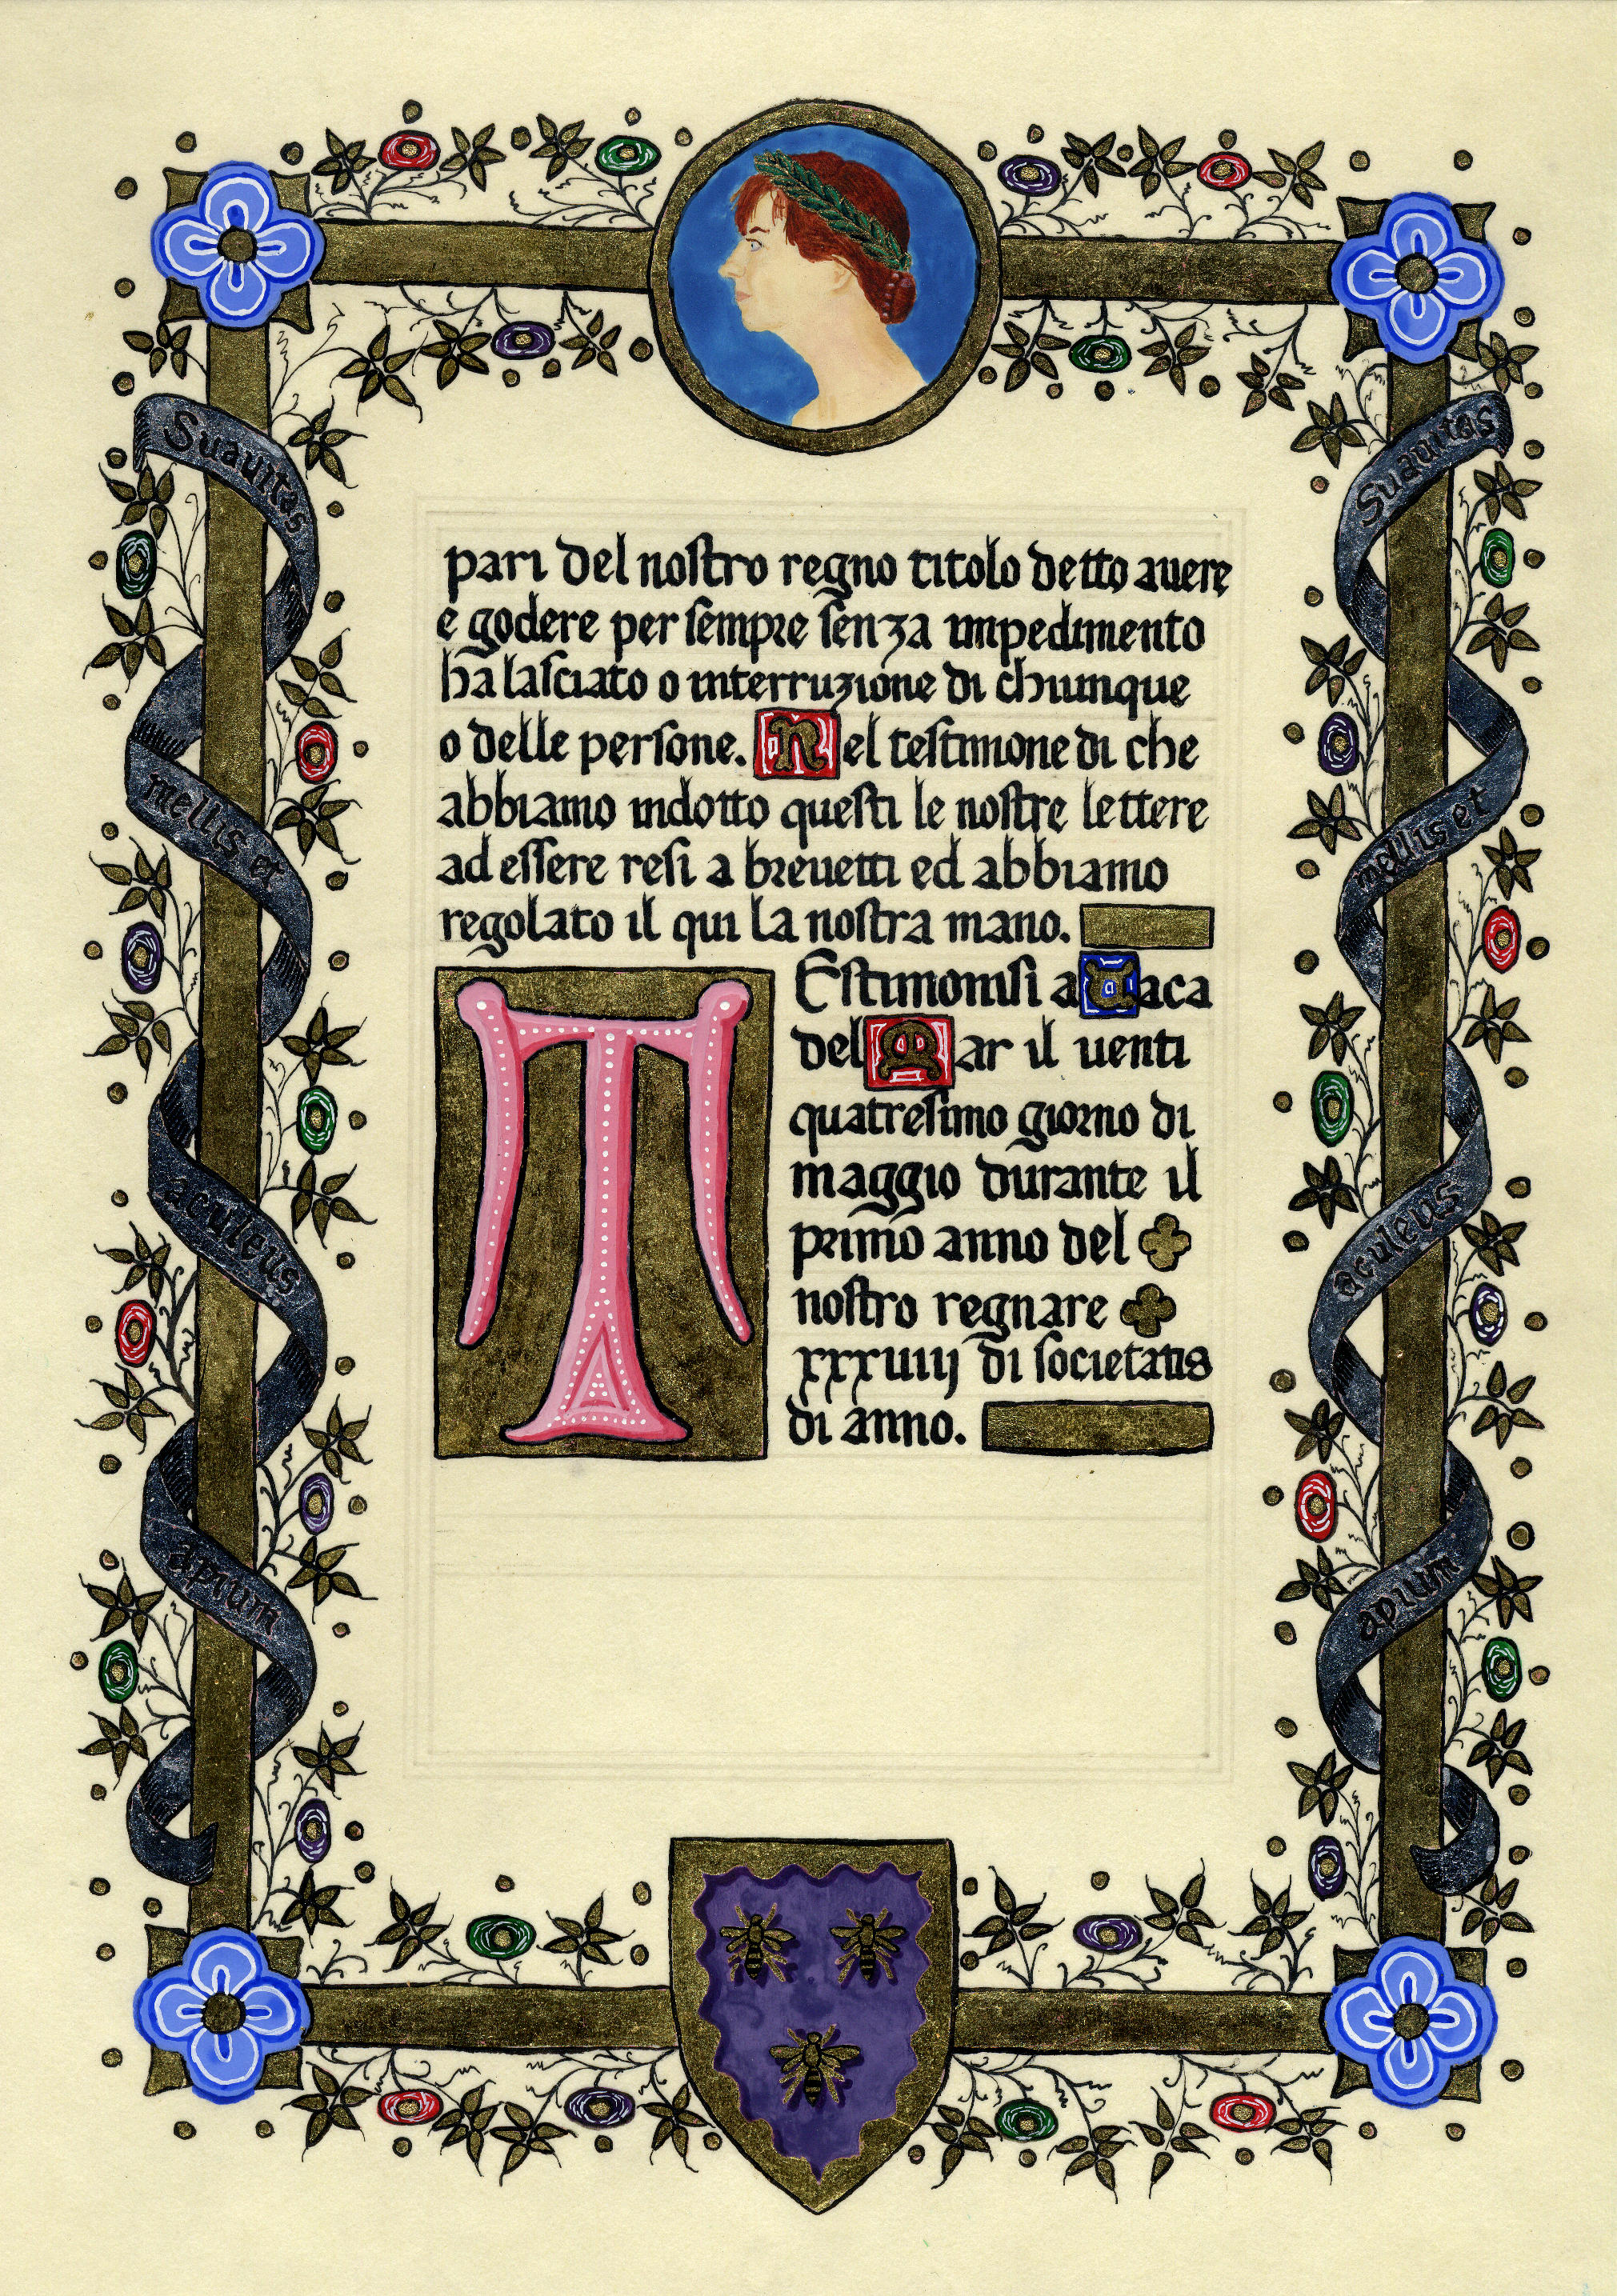 Suauitas
mellis et
aculeus
apium
pari del nostro regno titolo detto auere
e godere per sempre senza impedimento
ha lasciato o interruzione di chiunque
o delle persone. Nel testimone di che
abbiamo indotto questi le nostre lettere
ad essere resi a breuetti ed abbiamo
regolato il qui la nostra mano.
TEstimonisi a Vaca
del Mar il uenti
quatresimo giorno di
maggio durante il
primo anno del
nostro regnare
xxxuiij di societatis
di anno.
Suauitas
mellis et
aculeus
apium